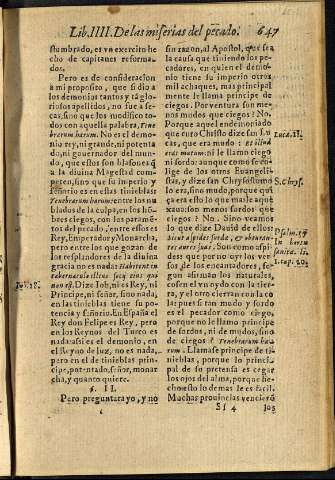 Lib. IIII. De las miserias del pecado. 647
stumbrado, es vn exercito he
cho de capitanes reforma-
dos.
Pero es de consideracion
a mi proposito, que si dio a
los demonios tantos y tã glo
riosos apellidos, no fue a se-
cas, sino que los modifico to-
dos con aquella palabra, Tene
brarum harum. No es el demo
nio rey, ni grande, ni potenta
do, ni governador del mun-
do, que estos son blasones q̃
a la diuina Magestad com-
peten, sino que su Imperio y
señorio es en estas tinieblas
Tenebrarum harum: entre los nu
blados de la culpa, en los hõ-
bres ciegos, con los parasis-
mos del pecado, entre essos es
Rey, Emperador y Monarcha,
pero entre los que gozan de
los resplandores de la diuina
gracia no es nada:
Dize Iob, ni es Rey, ni
Principe, ni señor, sino nada,
en las tinieblas tiene su po-
tencia y señorio. En España el
Rey don Felipe es Rey, pero
en los Reynos del Turco es
nada: assi es el demonio, en
el Reyno de luz, no es nada,
pero en el de tinieblas prin-
cipe, potentado, señor, monar
cha, y quanto quiere.
§. II.
Pero preguntara yo, y no
sin razon, al Apostol, que sea
la causa que tiniendo los pe-
cadores, en quien el demo-
nio tiene su imperio otros
mil achaques, mas principal
mente le llama principe de
ciegos. Por ventura son me-
nos mudos que ciegos? No.
Porque aquel endemoniado
que curo Christo dize san Lu
cas, que era mudo:
ni le llamo ciego
ni sordo: aunque como de mi
lige de los otros Euangelis-
tas, y dize san Chrysostomo
lo era, sino mudo, porque quiç
ça era esso lo que mas le aque
xaua: son menos sordos que
ciegos? No. Sino veamos
lo que dize Dauid de ellos:
Son como aspi-
des: que por no oyr los ver-
sos de los encantadores, se-
gun afirman los naturales,
cosen el vn oydo con la tier-
ra, y el otro cierran con la co
la: pues si tan mudo y sordo
es el pecador como ciego,
porque no le llamo principe
de sordos, ni de mudos, sino
de ciegos
rum. Llamase principe de ti-
nieblas, porque lo princi-
pal de su pretensa es cegar
los ojos del alma, porque he-
cho esto lo demas le es facil.
Muchas prouincias venciero
Sf 4
los
Iob. 18.
Luca. 11.
S. Chrys.